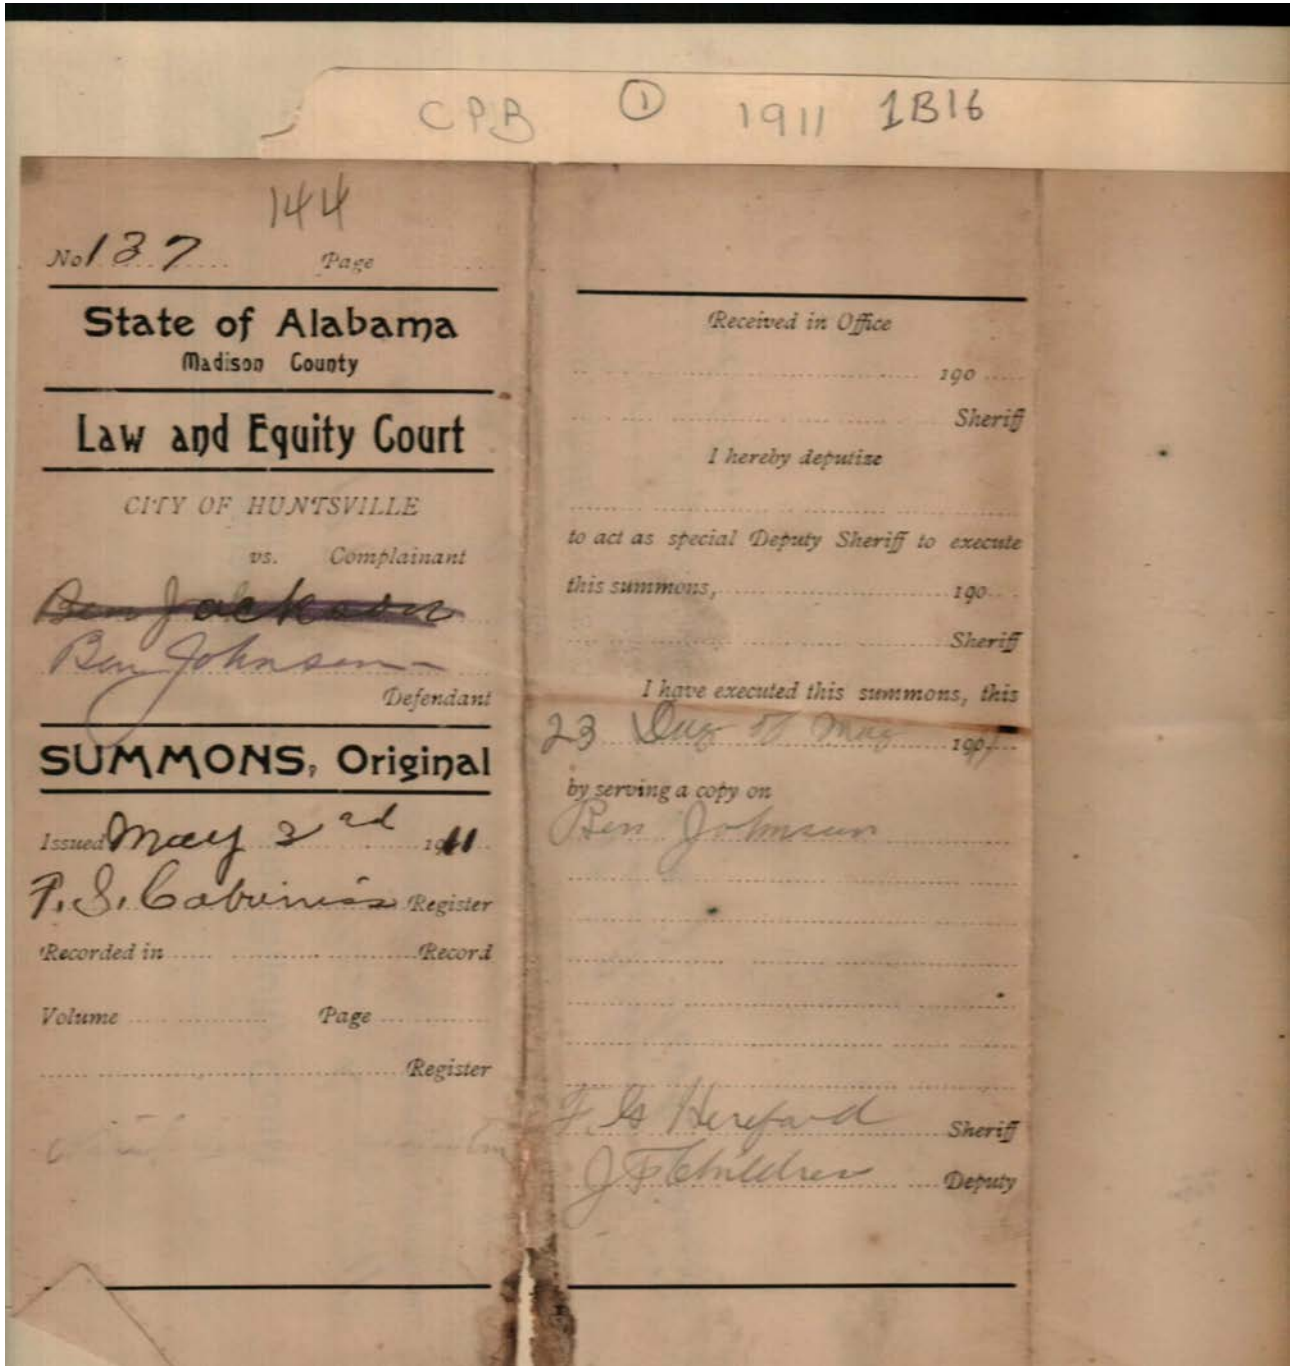 CPB 1 1911 1B16
144
No 137 Page
State of Alabama
Madison County
Law and Equity Court
CITY OF HUNTSVILLE
vs. Complainant
Ben Jackson
Ben Johnson
Defendant
SUMMONS, Original
Issued May 2nd 1911
Register
Recorded in Record
Volume Page
Register
Received in Office
190
Sheriff
I hereby deputize
to act as special Deputy Sheriff to execute
this summons, 190
Sheriff
I have executed this summons, this
23 Day of May 190
by serving a copy on
Ben Johnson
F. G Hereford Sheriff
J F Childress Deputy